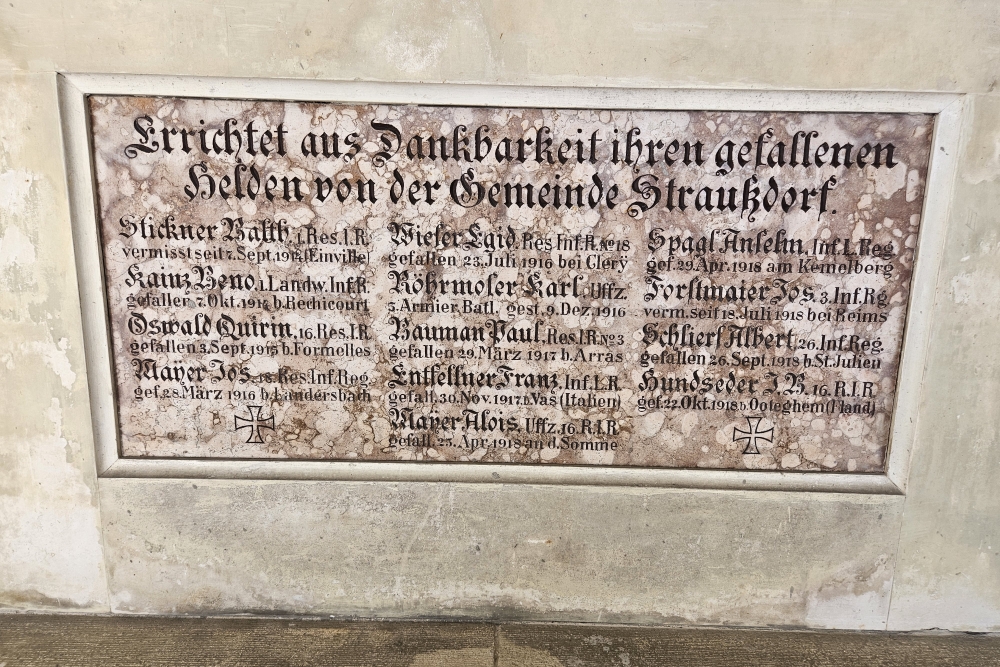 Errichtet aus Dankbarkeit ihren gefallenen
Helden von der Gemeinde Straußdorf.
Stickner Balth. 1. Res. I. R.
vermisst seit 7. Sept. 1914 (Einville)
Kainz Beno, 1. Landw. Inf. R.
gefallen 7. Okt. 1914 b. Rechicourt
Oswald Quirin, 16. Res. I. R.
gefallen 3. Sept. 1915 b. Formelles
Mayer Jos. Res. Inf. Reg.
gef. 28. März 1916 b. Landersbach
Wieser Egid, Res. Inf. R. No 18
gefallen 23. Juli 1916 bei Clerÿ
Röhrmoser Karl, Uffz.
5. Armier. Batl. gest. 9. Dez. 1916
Bauman Paul, Res. I. R. No 3
gefallen 29. März 1917 b. Arras
Entfellner Franz, Inf. L. R.
gefall. 30. Nov. 1917. b. Vas (Italien)
Mayer Alois, Uffz. 16. R. I. R.
gefall. 25. Apr. 1918 an d. Somme
Spagl Anselm, Inf. L. Reg.
gef. 29. Apr. 1918 am Kemelberg
Forstmaier Jos. 3. Inf. Rg.
verm. seit 18. Juli 1918 bei Reims
Schlierf Albert, 26. Inf. Reg.
gefallen 26. Sept. 1918 b. St. Julien
Hundseder J. B. 16. R. I. R.
gef. 22. Okt. 1918 b. Ooteghem (Fland)